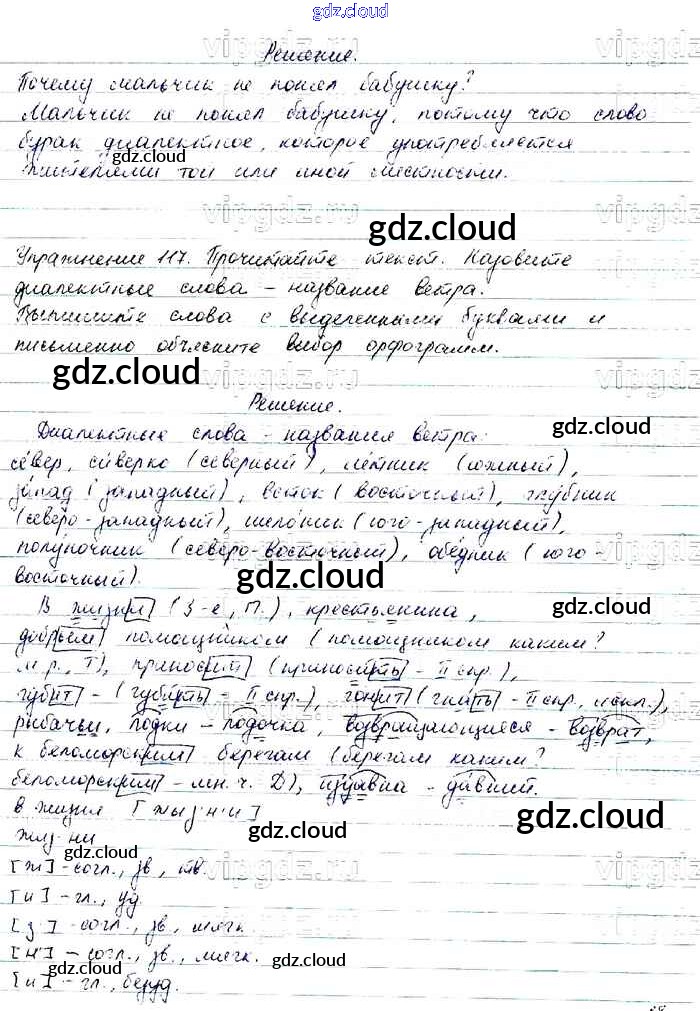 gdz.cloud
Решение.
Почему мальчик не понял бабушку?
Мальчик не понял бабушку, потому что слово
бурак диалектное, которое употребляется
жителями той или иной местности.
gdz.cloud
gdz.cloud
Упражнение 117. Прочитайте текст. Назовите
диалектные слова – название ветра.
Выпишите слова с выделенными буквами и
письменно объясните выбор орфограмм.
gdz.cloud
Решение.
gdz.cloud
Диалектные слова – названия ветра:
се́вер, си́верко (северный), ле́тник (южный),
за́пад (западный), восток (восточный), глу́бник
(северо-западный), шело́ник (юго-западный),
полу́ночник (северо-восточный), обе́дник (юго-
восточный).
gdz.cloud
gdz.cloud
В жизни (3-е, П.), крестьянина,
добрым помощником (помощником каким?
м.р., Т), приносит (приносить – II спр.),
губит – (губить – II спр.), гонит (гнать – II спр., искл.),
рыбачьи, лодки – лодочка, возвращающиеся – возврат,
к беломорским берегам (берегам каким?
беломорским – мн. ч. Д), издавна – давний.
в жизни [жыз'н'и]
gdz.cloud
gdz.cloud
жиз-ни
gdz.cloud
[ж] – согл., зв., тв.
[и] – гл., уд.
[з'] – согл., зв., мягк.
gdz.cloud
gdz.cloud
[н'] – согл., зв., мягк.
gdz.cloud
[и] – гл., безуд.
gdz.cloud